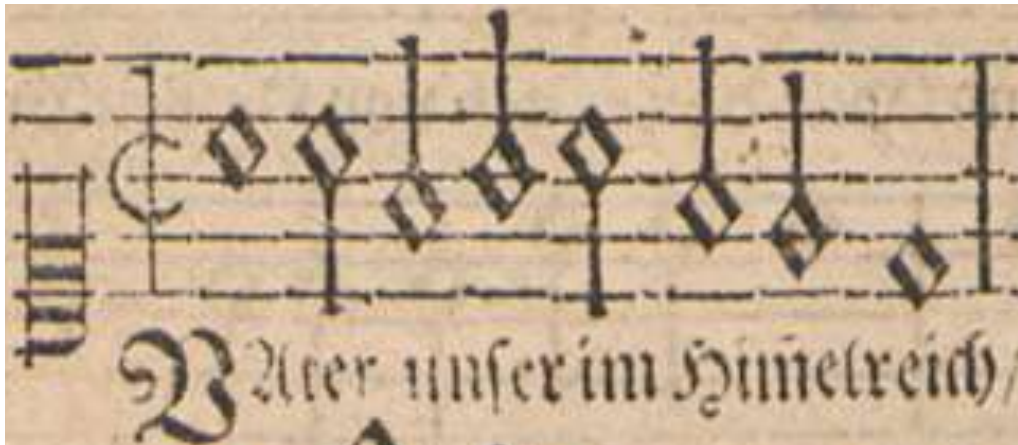 VAter unſer im Him̃elreich /